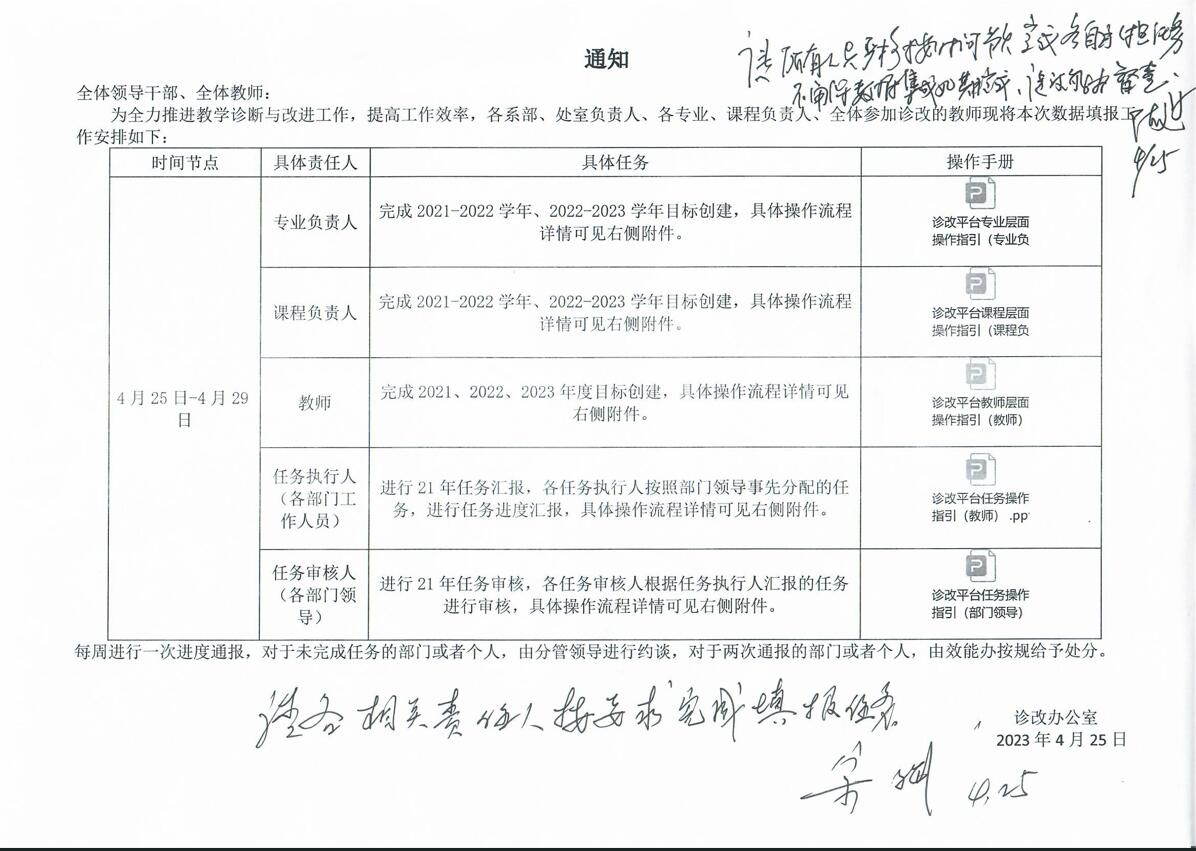 通知
全体领导干部、全体教师：
为全力推进教学诊断与改进工作，提高工作效率，各系部、处室负责人、各专业、课程负责人、全体参加诊改的教师现将本次数据填报工
作安排如下：
时间节点 具体责任人 具体任务 操作手册
4月25日-4月29
日
专业负责人
完成2021-2022学年、2022-2023学年目标创建，具体操作流程
详情可见右侧附件。
诊改平台专业层面
操作指引（专业负
课程负责人
完成2021-2022学年、2022-2023学年目标创建，具体操作流程
详情可见右侧附件。
诊改平台课程层面
操作指引（课程负
教师
完成2021、2022、2023年度目标创建，具体操作流程详情可见
右侧附件。
诊改平台教师层面
操作指引（教师）
任务执行人
（各部门工
作人员）
进行21年任务汇报，各任务执行人按照部门领导事先分配的任
务，进行任务进度汇报，具体操作流程详情可见右侧附件。
诊改平台任务操作
指引（教师）.pp
任务审核人
（各部门领
导）
进行21年任务审核，各任务审核人根据任务执行人汇报的任务
进行审核，具体操作流程详情可见右侧附件。
诊改平台任务操作
指引（部门领导）
每周进行一次进度通报，对于未完成任务的部门或者个人，由分管领导进行约谈，对于两次通报的部门或者个人，由效能办按规给予处分。
请各相关责任人按要求完成填报任务
诊改办公室
2023年4月25日
4.25
4/25